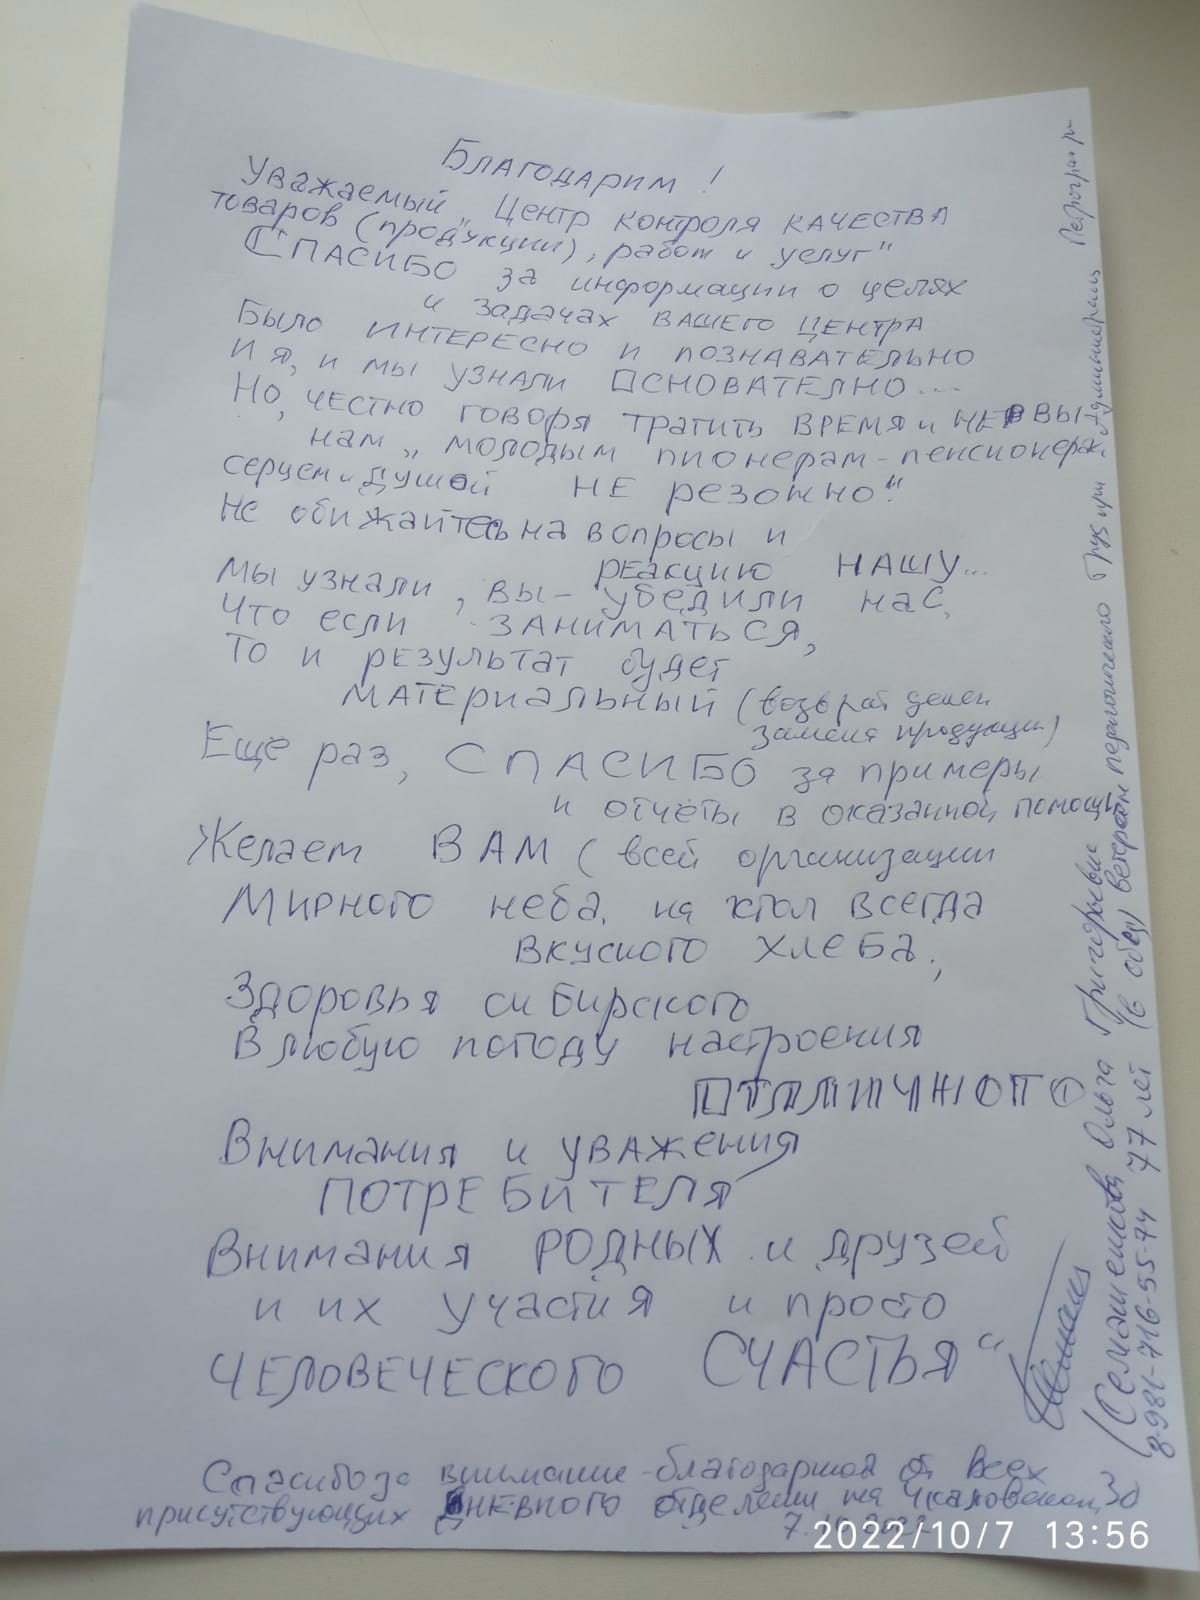 Благодарим!
Уважаемый „Центр контроля качества
товаров (продукции), работ и услуг"
Спасибо за информации о целях
и задачах вашего центра
Было интересно и познавательно
И я, и мы узнали основателно...
Но, честно говоря тратить время и нервы
нам „молодым пионерам-пенсионерам
серцем и душой не резонно."
Не обижайтесь на вопросы и
реакцию НАШУ...
Мы узнали, вы - убедили нас,
Что если заниматься,
То и результат будет
материальный (возврат денег
замена продукции)
Еще раз, СПАСИБО за примеры
и отчёты в оказанной помощи
Желаем ВАМ (всей организации
Мирного неба, на стол всегда
вкусного хлеба,
Здоровья сибирского
В любую погоду настроения
отличного
Внимания и уважения
ПОТРЕБИТЕЛЯ
Внимания РОДНЫХ и друзей
и их участия и просто
ЧЕЛОВЕЧЕСКОГО СЧАСТЬЯ"
Спасибо за внимание - благодарность от всех
присутствующих дневного отделения на Чкаловском, 30
7.10.2022
Ольга Григорьевна
8-981-716-55-74 77 лет
ветеран педагогического труда при Администрации Петрогр р-н
2022/10/7 13:56